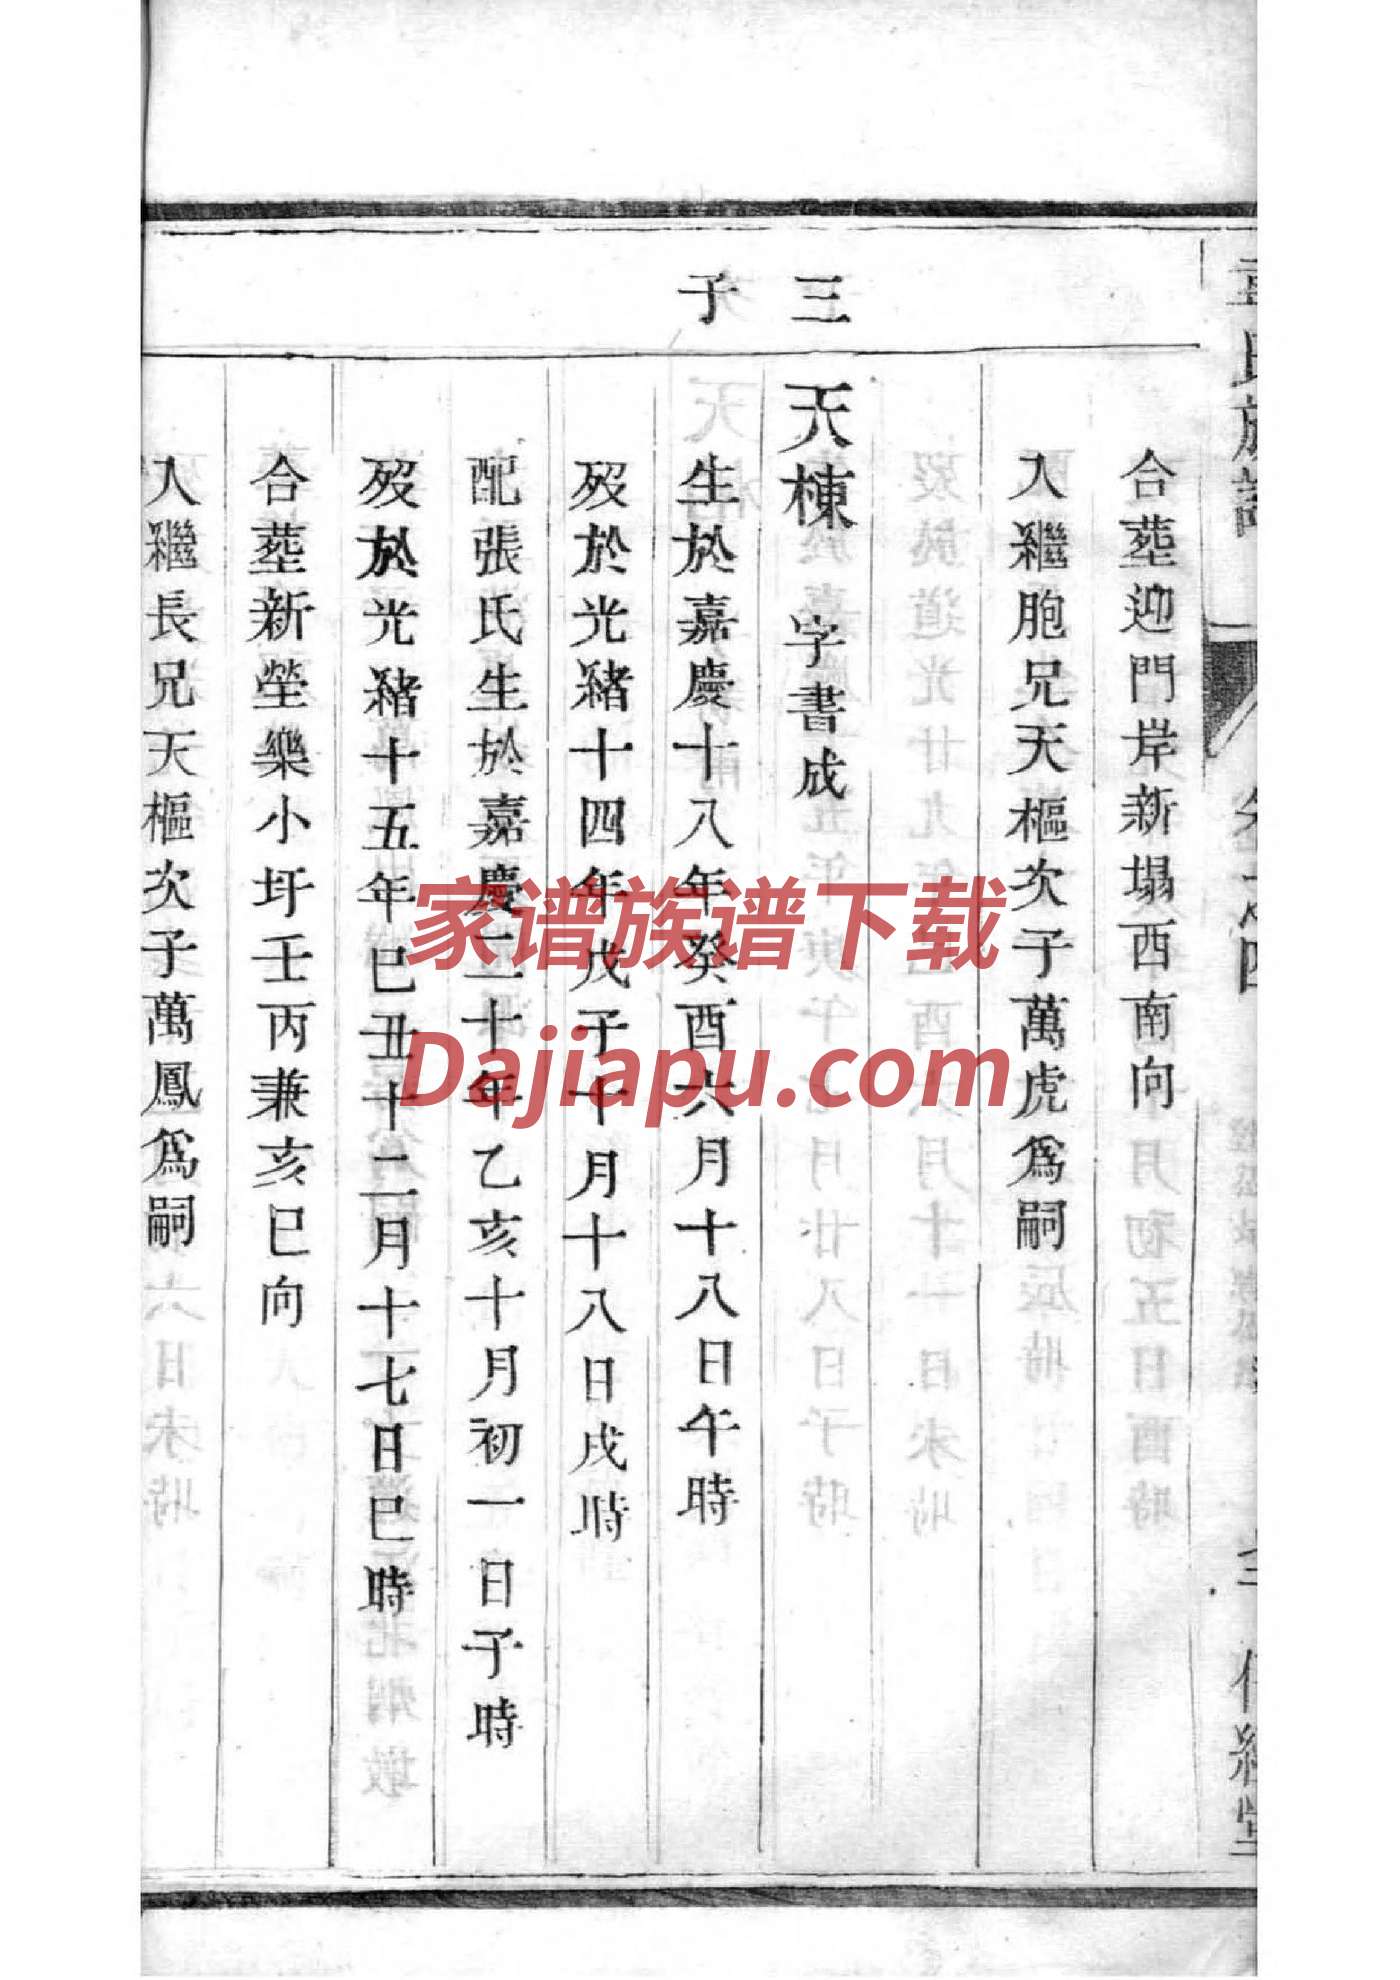 合塟迎門岸新塌西南向
入繼胞兄天樞次子萬虎爲嗣
三子
天棟 字書成
生於嘉慶十八年癸酉六月十八日午時
歿於光緒十四年戊子十月十八日戌時
配張氏生於嘉慶二十年乙亥十月初一日子時
歿於光緒十五年巳丑十二月十七日巳時
合塟新塋樂小圩壬丙兼亥巳向
入繼長兄天樞次子萬鳳爲嗣
家谱族谱下载
Dajiapu.com